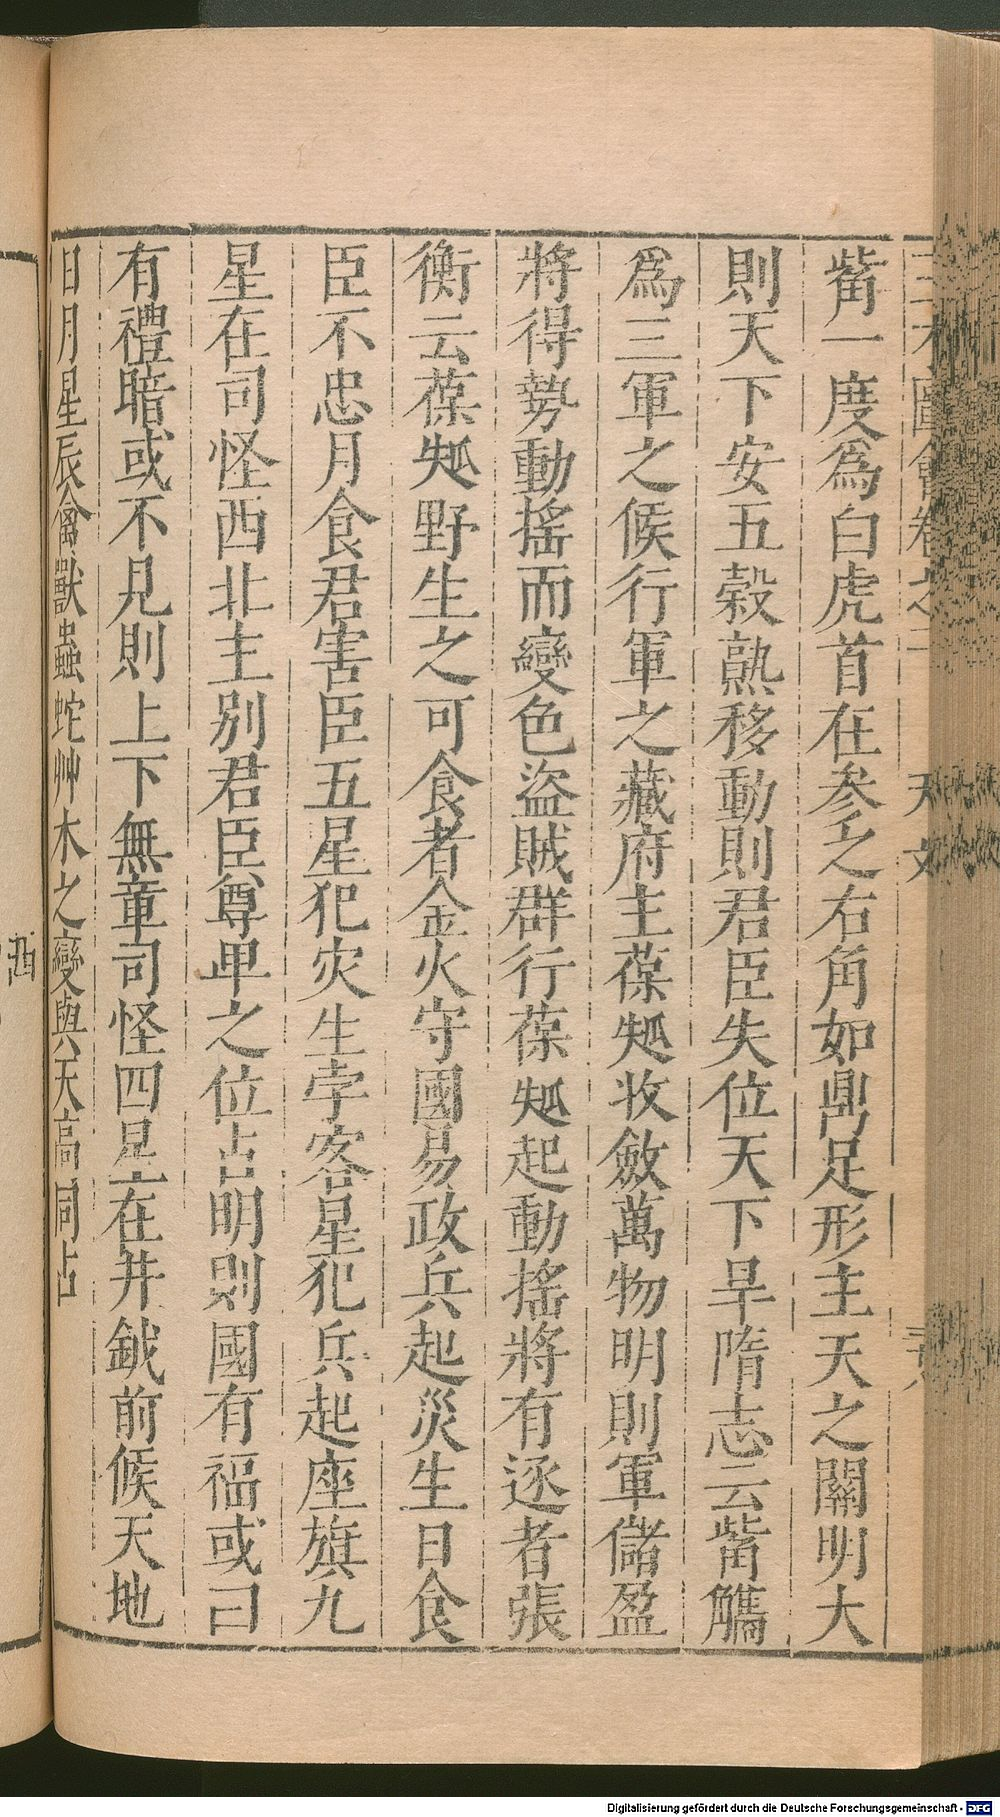 三才圖會卷之 天文
觜一度爲白虎首在參之右角如鼎足形主天之關明大
則天下安五穀熟移動則君臣失位天下旱隋志云觜觿
爲三軍之候行軍之藏府主葆𥝩收斂萬物明則軍儲盈
將得勢動搖而變色盜賊群行葆𥝩起動搖將有逐者張
衡云葆𥝩野生之可食者金火守國易政兵起災生日食
臣不忠月食君害臣五星犯灾生孛客星犯兵起座旗九
星在司怪西北主别君臣尊甲之位占明則國有福或曰
有禮暗或不見則上下無章司怪四星在井鉞前候天地
日月星辰禽獸蟲蛇艸木之變與天高同占
Digitalisierung gefördert durch die Deutsche Forschungsgemeinschaft - DFG